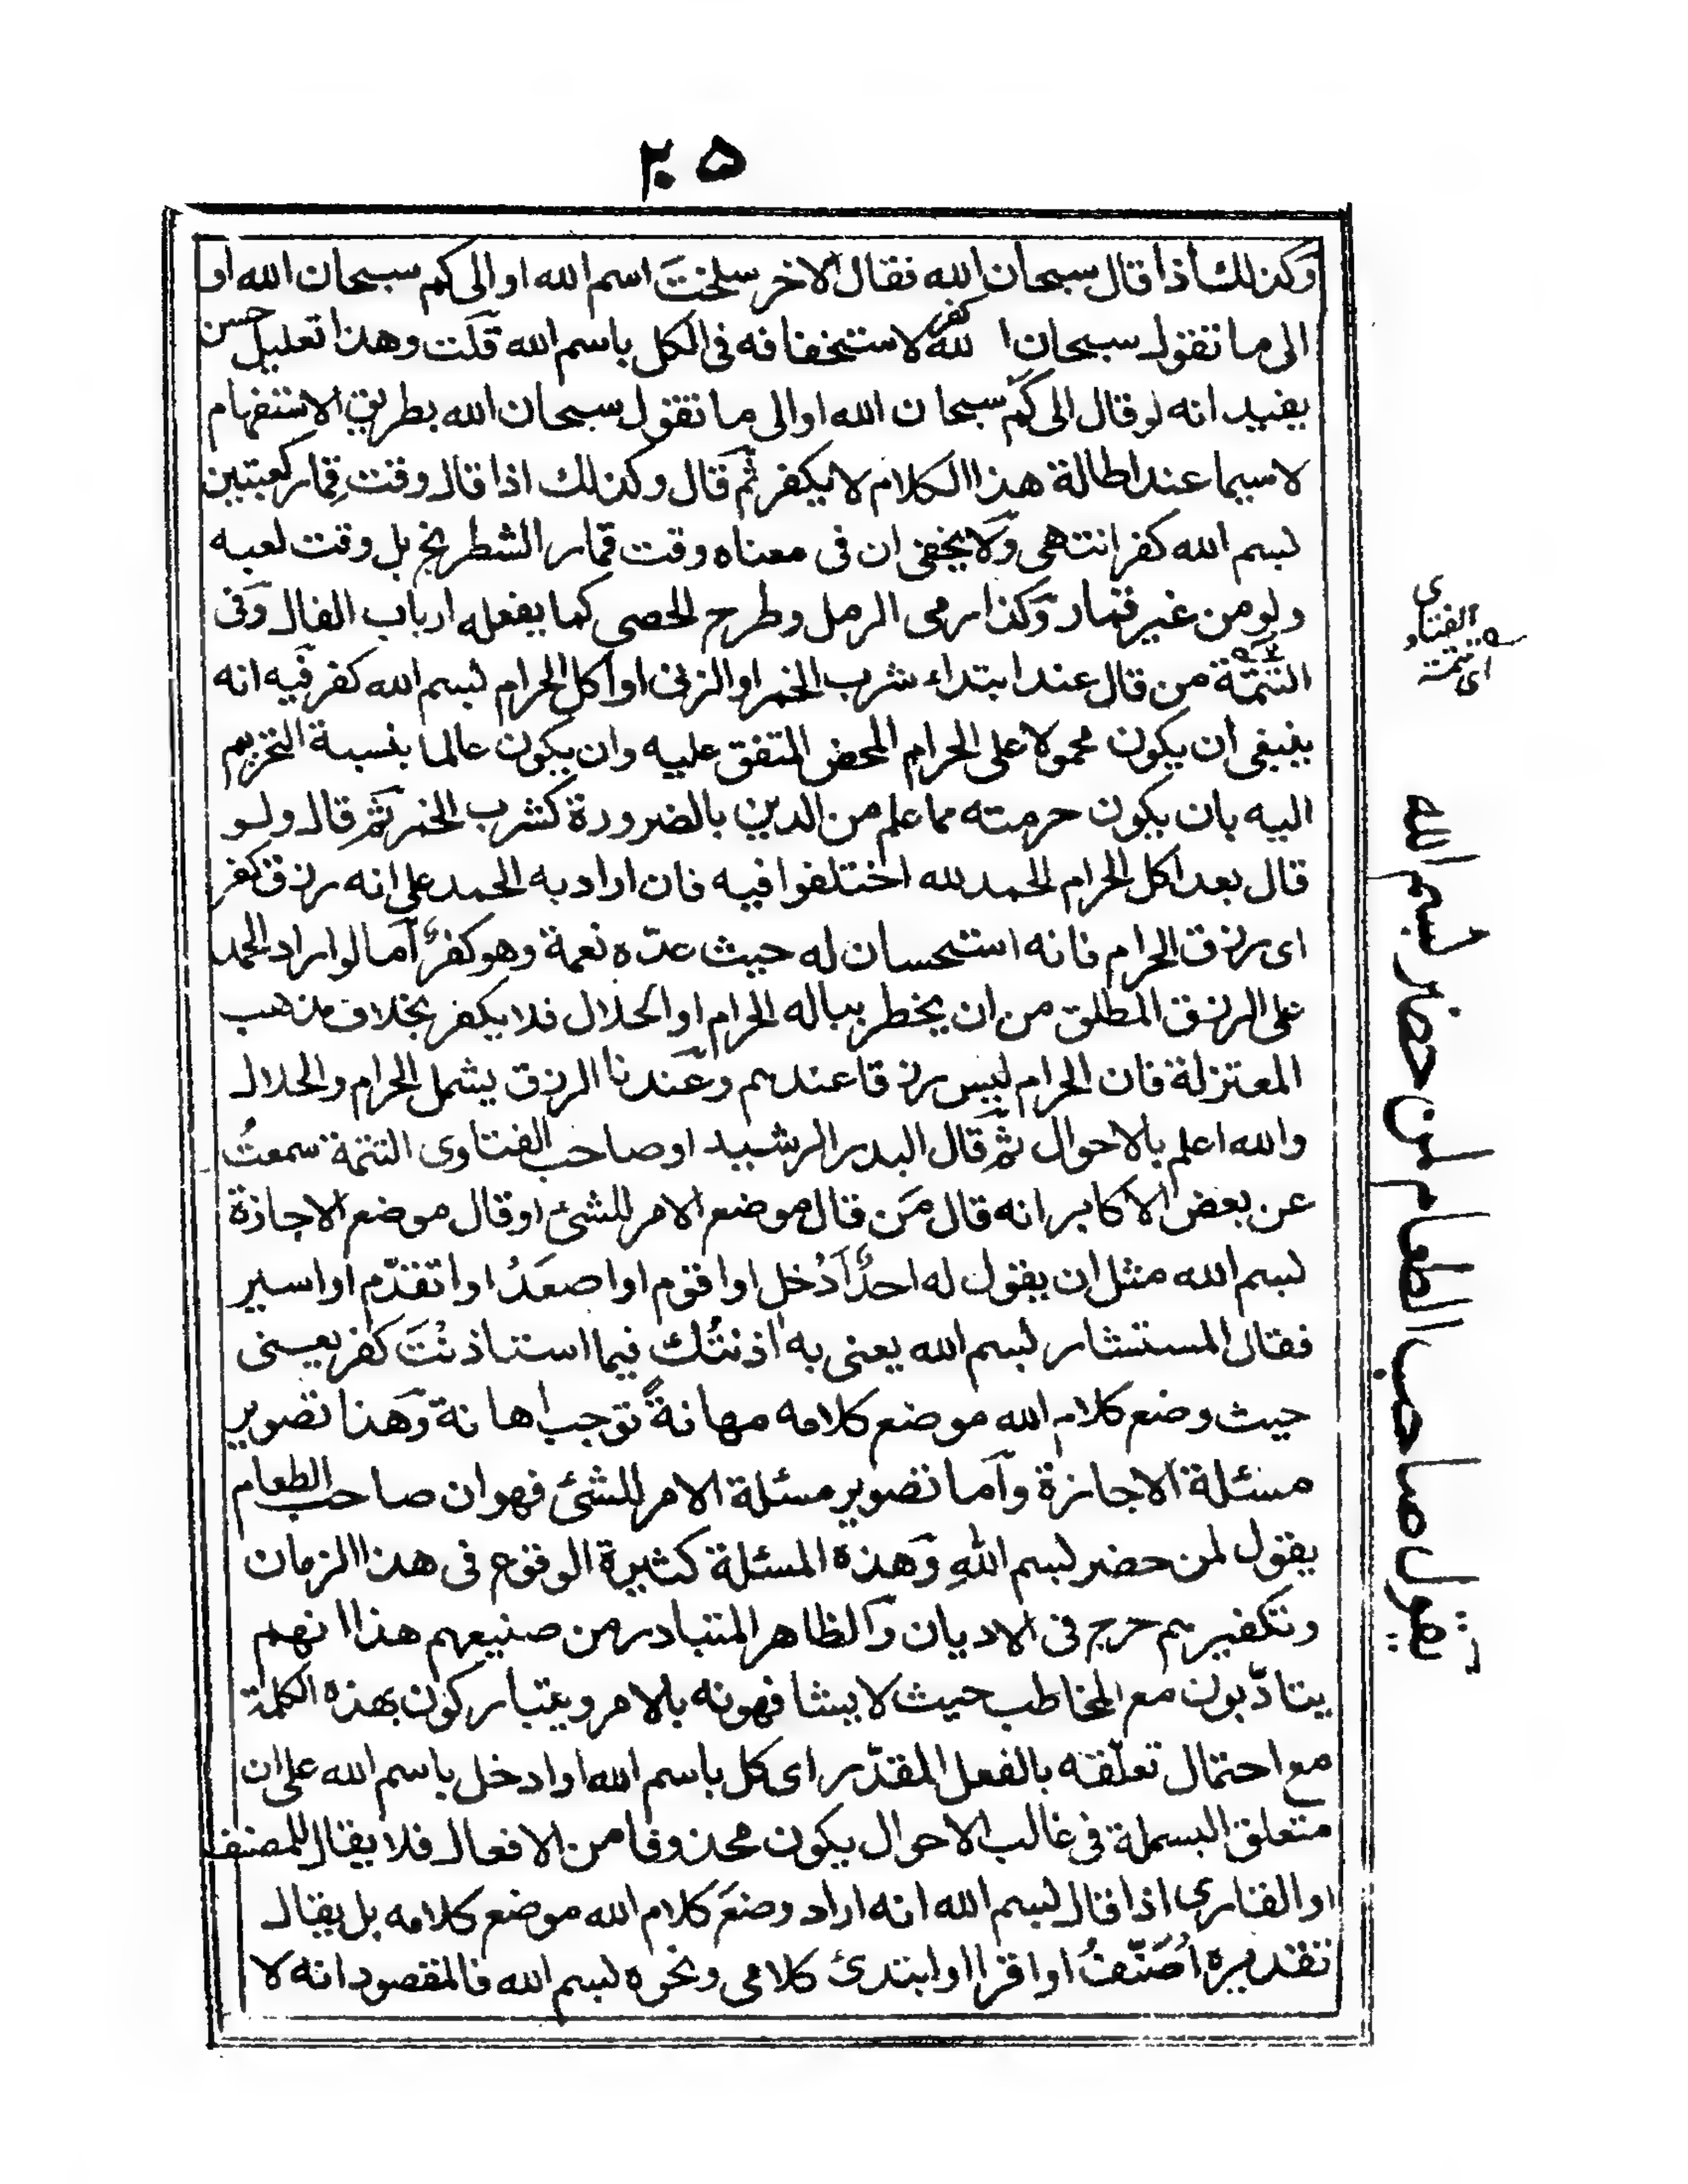 ٢٠٥
وكذلك اذا قال سبحان الله فقال الاخر سلخت اسم الله او الى كم سبحان الله او
الى ما تقول سبحان الله كفر لاستخفافه فى الكل باسم الله قلت وهذا تعليل حسن
يفيد انه لو قال الى كم سبحان الله او الى ما تقول سبحان الله بطريق الاستفهام
لا سيما عند اطالة هذا الكلام لا يكفر ثم قال وكذلك اذا قال وقت قمار كعبتين
بسم الله كفر انتهى ولا يخفى ان فى معناه وقت قمار الشطرنج بل وقت لعبه
ولو من غير قمار وكذا رمى الرمل وطرح الحصى كما يفعله ارباب الفال وفى
التتمّة من قال عند ابتداء شرب الخمر او الزنى او اكل الحرام بسم الله كفر فيه انه
ينبغى ان يكون محمولا على الحرام المحض المتفق عليه وان يكون عالما بنسبة التحريم
اليه بان يكون حرمته مما علم من الدين بالضرورة كشرب الخمر ثم قال ولو
قال بعد اكل الحرام الحمد لله اختلفوا فيه فان اراد به الحمد على انه رزق كفر
اى رزق الحرام فانه استحسان له حيث عدّه نعمة وهو كفر اما لو اراد الحمد
على الرزق المطلق من ان يخطر بباله الحرام او الحلال فلا يكفر بخلاف مذهب
المعتزلة فان الحرام ليس رزقا عندهم وعندنا الرزق يشمل الحرام والحلال
والله اعلم بالاحوال ثم قال البدر الرشيد او صاحب الفتاوى التتمة سمعتُ
عن بعض الاكابر انه قال مَن قال موضع الامر للشئ او قال موضع الاجازة
بسم الله مثل ان يقول له احدٌ اَدْخل او اقوم او اصعَدُ او اتقدّم او اسير
فقال المستشار بسم الله يعنى به اذنتُك فيما استاذنْتَ كفر يعنى
حيث وضع كلام الله موضع كلامه مهانةً توجب اهانة وهذا تصوير
مسئلة الاجازة واما تصوير مسئلة الامر للشئ فهو ان صاحب الطعام
يقول لمن حضر بسم اللهِ وهذه المسئلة كثيرة الوقوع فى هذا الزمان
وتكفيرهم حرج فى الاديان والظاهر المتبادر من صنيعهم هذا انهم
يتادّبون مع المخاطب حيث لا يشافهونه بالامر ويتباركون بهذه الكلمة
مع احتمال تعلّقه بالفعل المقدّر اى كل باسم الله او ادخل باسم الله على ان
متعلق البسملة فى غالب الاحوال يكون محذوفا من الافعال فلا يقال للمصنف
او القارى اذا قال بسم الله انه اراد وضعَ كلام الله موضع كلامه بل يقال
تقديره اُصَنّفُ او اقرا او ابتدئ كلامى ونحوه بسم الله فالمقصود انه لا
اى تتمة
الفتاوى
يقول صاحب الطعام لمن حضر بسم الله